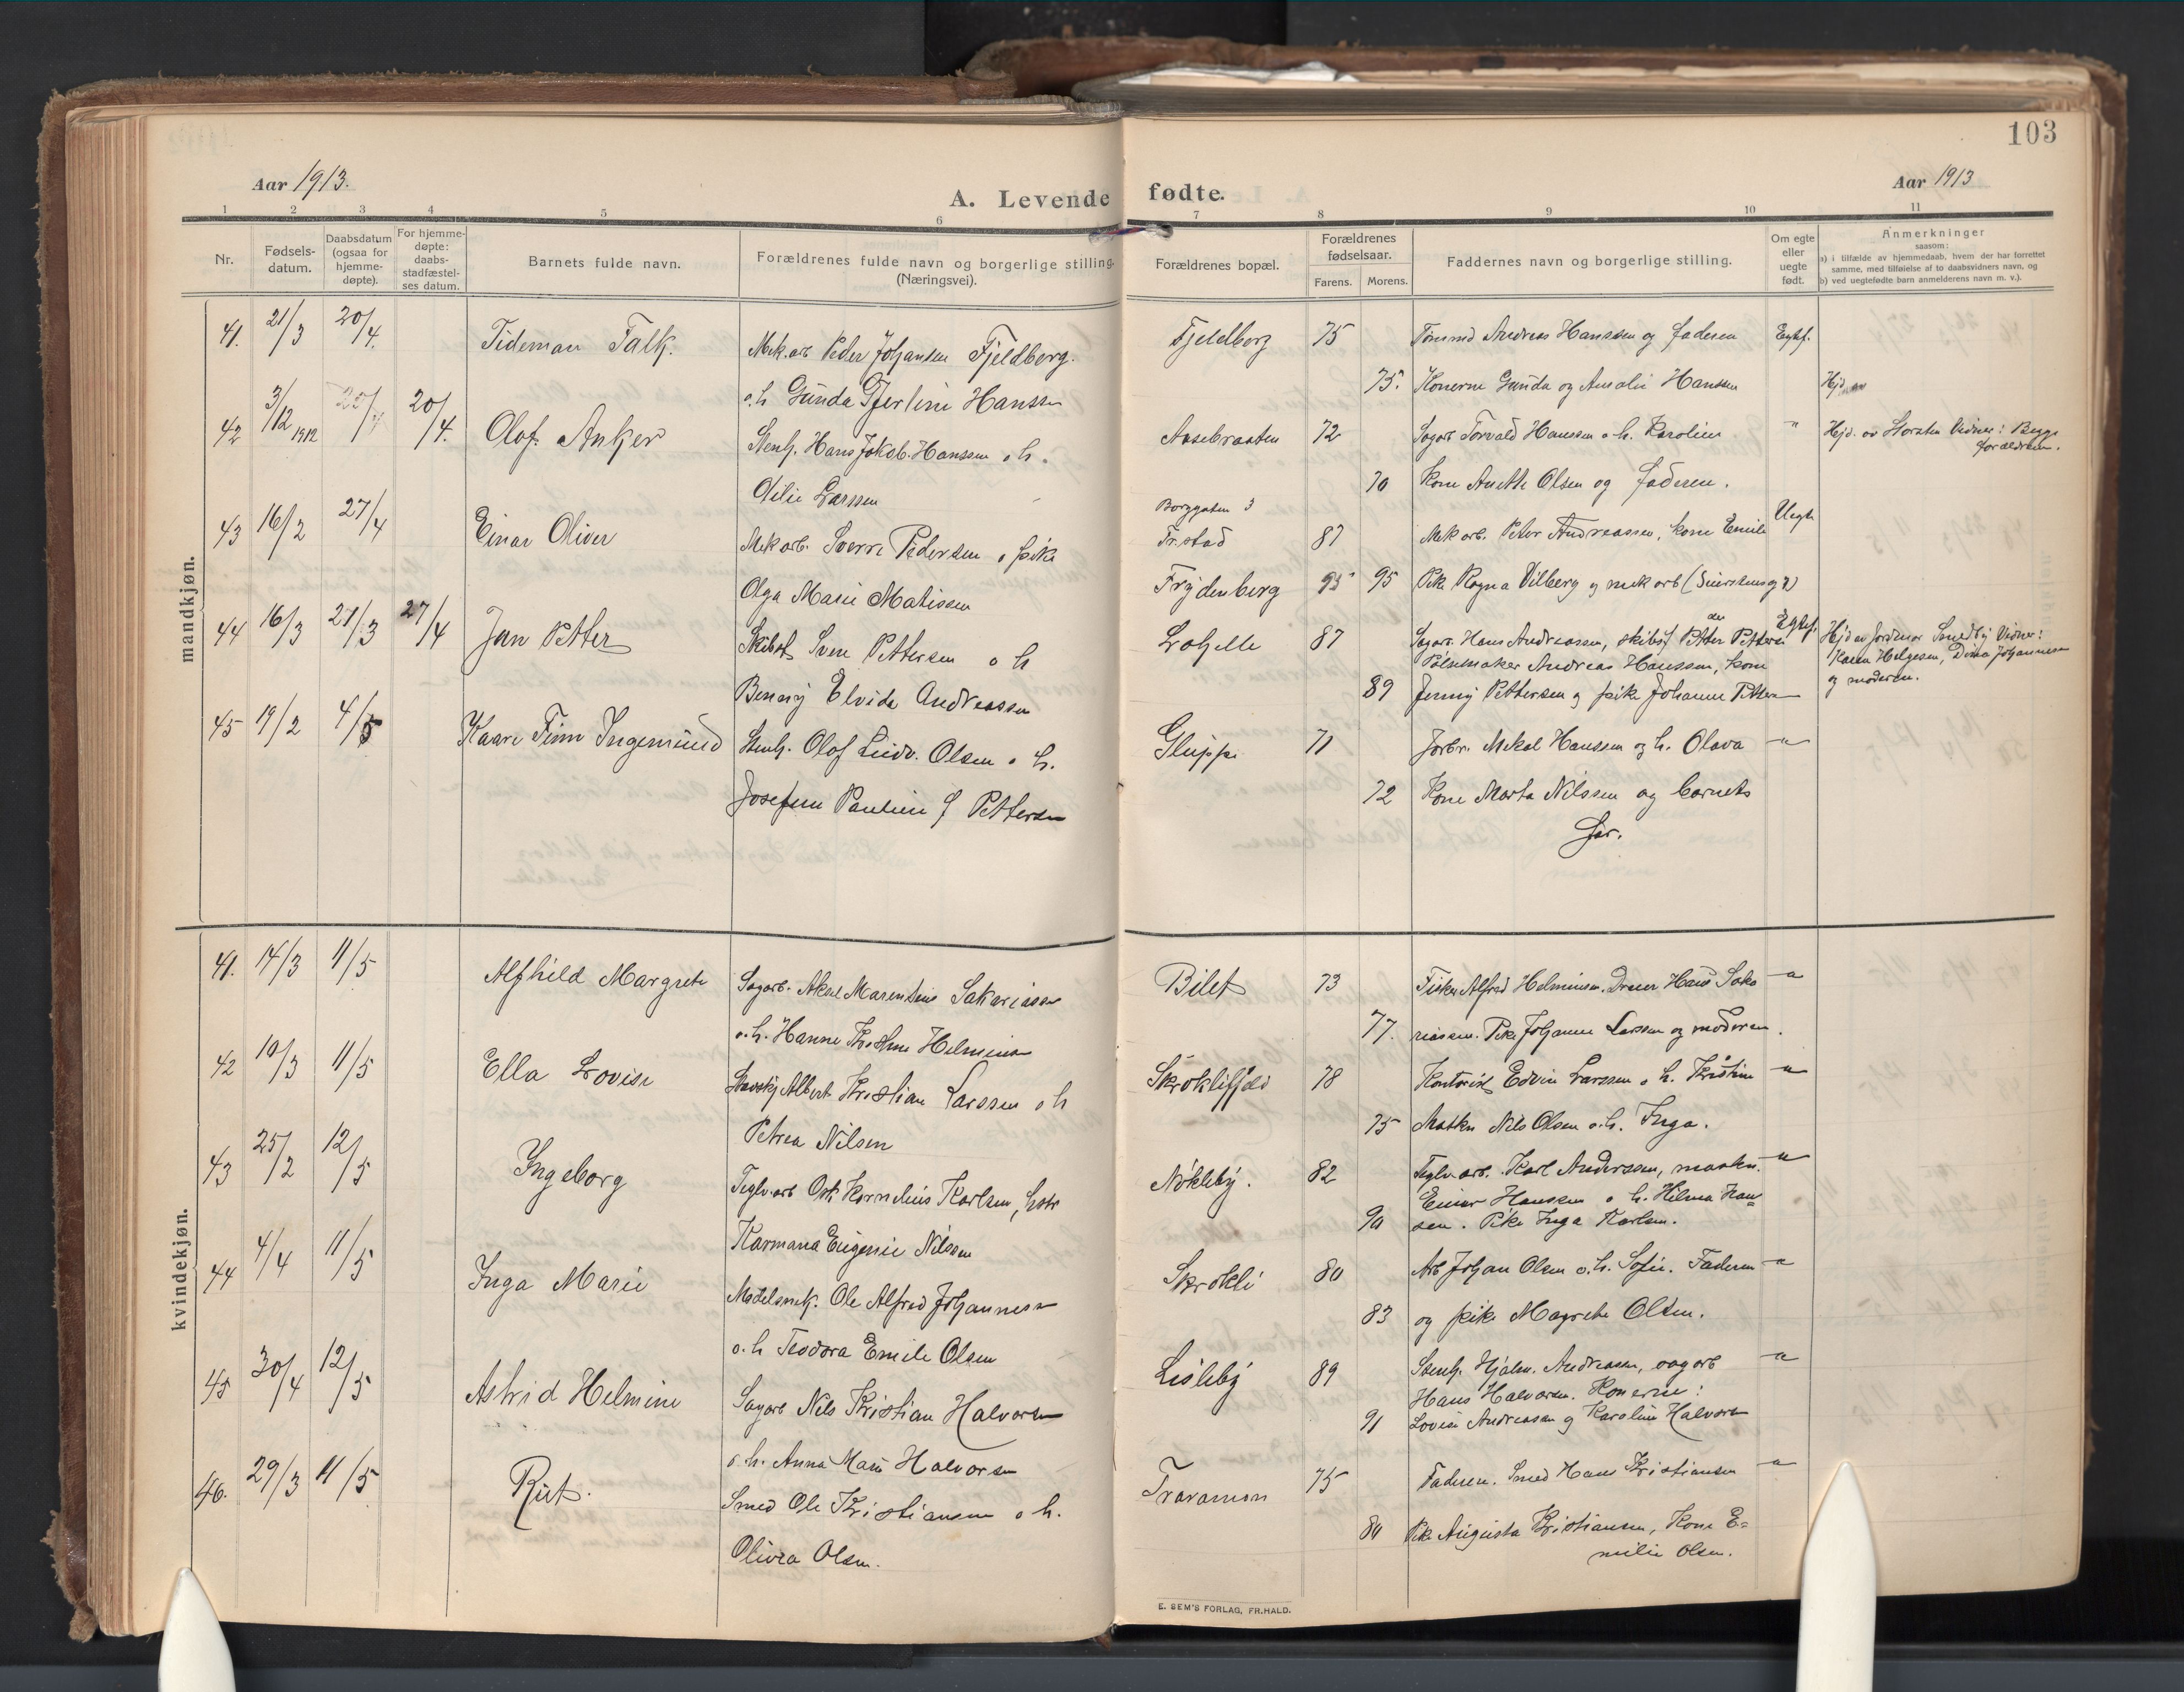 103
Aar 1913.
A. Levende fødte.
Aar 1913
1 2 3 4 5 6 7 8 9 10 11
Nr.
Fødsels-
datum.
Daabsdatum
(ogsaa for
hjemme-
døpte).
For hjemme-
døpte:
daabs-
stadfæstel-
ses datum.
Barnets fulde navn.
Forældrenes fulde navn og borgerlige stilling
(Næringsvei).
Forældrenes bopæl.
Forældrenes
fødselsaar.
Farens. Morens.
Faddernes navn og borgerlige stilling.
Om egte
eller
uegte
født.
Anmerkninger
saasom:
a) i tilfælde av hjemmedaab, hvem der har forrettet
samme, med tilføielse af to daabsvidners navn, og
b) ved uegtefødte barn anmelderens navn m. v.).
mandkjøn.
41. 21/3 20/4. Tideman Falk. Mek.arb Peder Johansen Fjeldberg. Fjeldberg 75 Tømmd Andreas Hanssen og faderen Egtef.
o.h Gunda Gjerline Hanssen 75. Konerne Gunda og Amalie Hanssen Hjd
42 3/12 1912 25/4 20/4. Olof Anker Stenh. Hans Jakob Hanssen o h. Aasebraaten 72 Sagarb Torvald Hanssen o h. Karoline " Hjd. av Vidner: Begge
forældrene.
Larssen 70 Kone Anette Olsen og faderen.
43 16/2 27/4 Einar Oliver Mek arb. Sverre Pedersen o pike Borggaten 3
Fr.stad 87 Mek arb. Peter Andreassen, kone Emile Uegte
Olga Marie Matissen Frydenberg 95 95 Pike Ragna Vilberg og mek arb
44 16/3 21/3 27/4 Jan Petter Skibst Sven Pettersen o h Lahelle 87 Sagarb. Hans Andreassen, skibsf Petter Pettersen Egtef. Hjd av Jordmor Smedby Vidner:
Karen Helgesen, Dina Johannesen
og moderen.
Pølsemaker Andreas Hanssen, kone
Benny Elvida Andreassen 89 Jenny Pettersen og pike Johanne Pettersen
45 19/2 4/5 Kaare Finn Ingemund Stenh. Olof Ludv. Olsen o h. Gluppe 71 Forbr. Mekal Hanssen og h. Olava "
Josefine Pauline f Pettersen 72 Kone Marta Nilssen og barnets
far.
kvindekjøn.
41. 14/3 11/5 Alfhild Margrete Sagarb. Aksel Marentius Sakariassen Bilet 73 Fisker Alfred Helminsen. Dreier Hans Saka "
o.h. Hanne Helminsen 77. riassen. Pike Johanne Larssen og moderen.
42 10/3 11/5 Ella Lovise Albert Kristian Larssen o h 78 Kontorist Edvin Larssen o h. Kristine "
Petrea Nilsen 75 Maskn Nils Olsen o.h. Inga.
43 25/2 12/5 Ingeborg Teglv.arb Osk Kornelius Karlsen, Nøkleby. 82 Teglv.arb. Karl Anderssen, maskn. "
Einar Hanssen o h. Hilma Han=
Karmana Eugenie Nilssen 90 sen. Pike Inga Karlsen.
44 4/4 11/5 Inga Marie Modelsnek. Ole Alfred Johannesen Skrokli 80 Arb Johan Olsen o.h. Sofie. Faderen "
o.h Teodora Emile Olsen 83 og pike Magrete Olsen.
45 30/4 12/5 Astrid Helmine Sagarb Nils Kristian Halvorsen Lisleby 89 Stenh. Hjalm. Andreassen, sagarb "
Hans Halvorsen. Konerne:
o.h. Anna Marie Halvorsen 91 Lovise Andreassen og Karoline Halvorsen
46. 29/3 11/5 Rut. Smed Ole Kristiansen o h. Traramoen 75 Faderen. Smed Hans Kristiansen "
Olivia Olsen. 80 Pike Augusta Kristiansen, Kone E=
milie Olsen.
E. SEM'S FORLAG, FR.HALD.